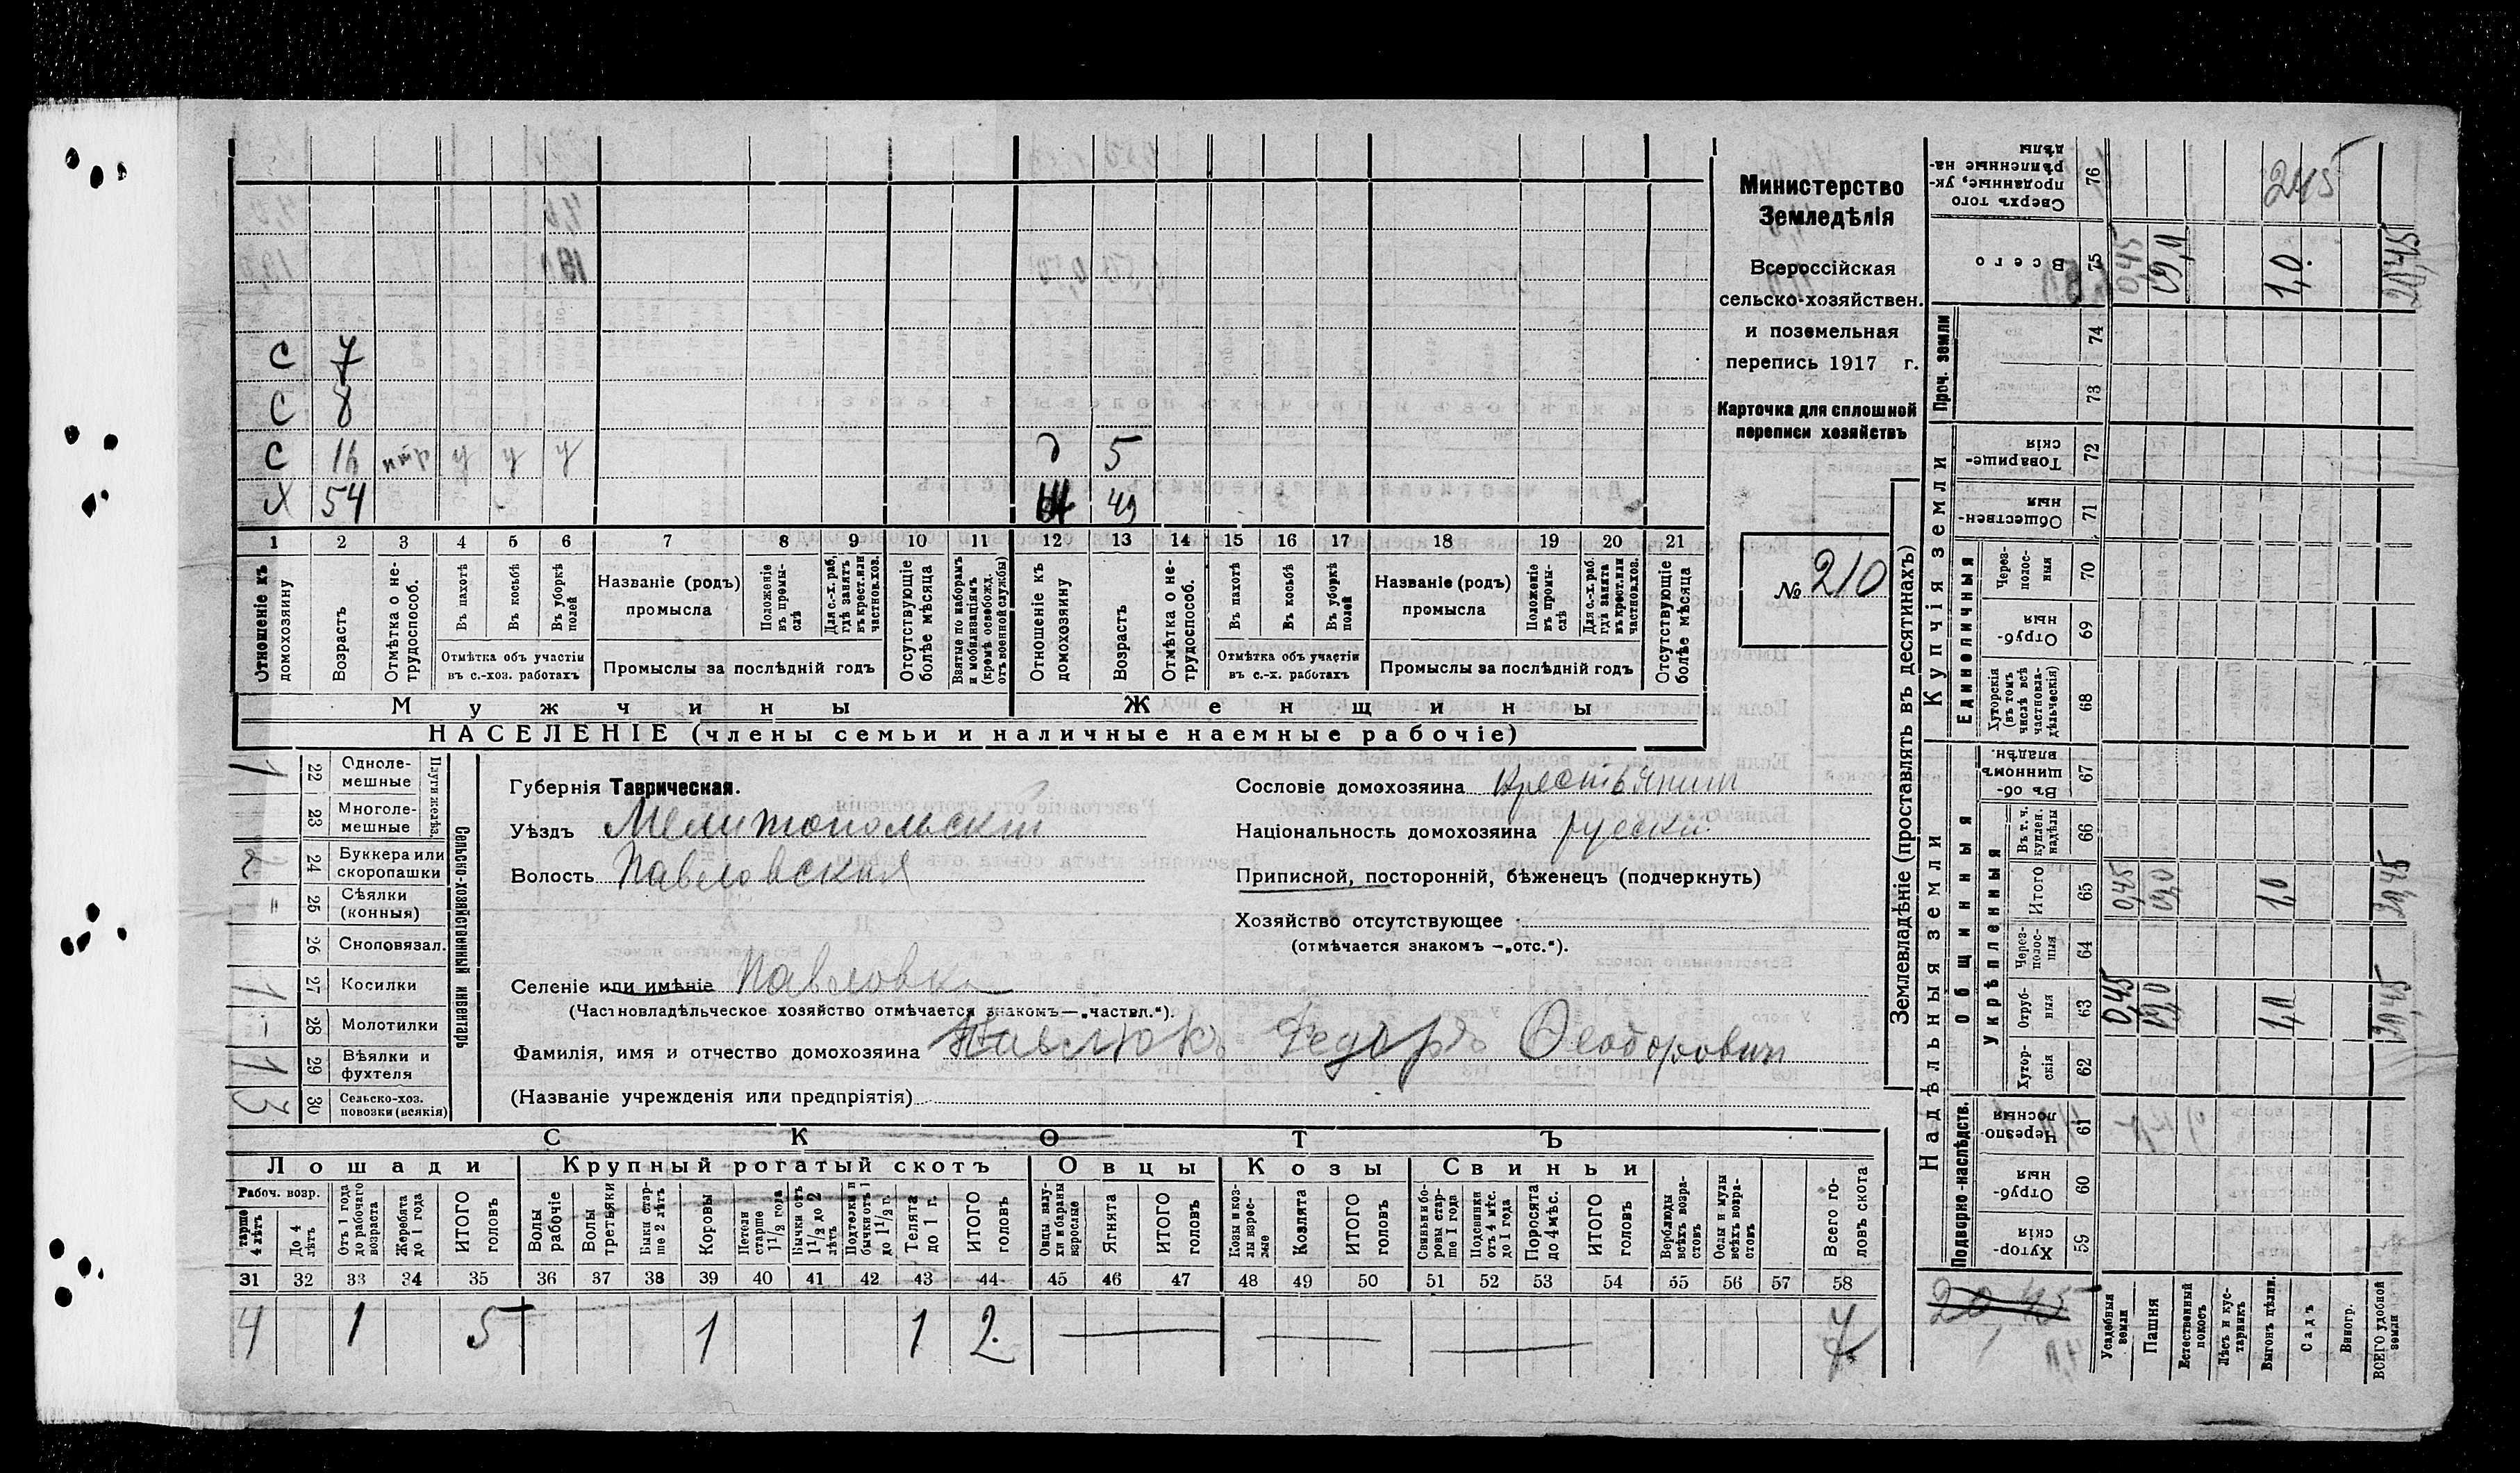 С 7
С 8
С 16 нтр у у у д 5
Х 54 49
1 2 3 4 5 6 7 8 9 10 11 12 13 14 15 16 17 18 19 20 21
Отношеніе къ домохозяину
Возрастъ
Отмѣтка о нетрудоспособ.
Въ пахотѣ
Въ косьбѣ
Въ уборкѣ полей
Отмѣтка объ участіи
въ с.-хоз. работахъ
Названіе (родъ)
промысла
Положеніе въ промыслѣ
Для с.-х. раб. гдѣ занятъ въ крест. или частнов. хоз.
Промыслы за послѣдній годъ
Отсутствующіе болѣе мѣсяца
Взятые по наборамъ и мобилизаціямъ (кромѣ освобожд. отъ военной службы)
Отношеніе къ домохозяину
Возрастъ
Отмѣтка о нетрудоспособ.
Въ пахотѣ
Въ косьбѣ
Въ уборкѣ полей
Отмѣтка объ участіи
въ с.-х. работахъ
Названіе (родъ)
промысла
Положеніе въ промыслѣ
Для с.-х. раб. гдѣ занята въ крест. или частнов. хоз.
Промыслы за послѣдній годъ
Отсутствующіе болѣе мѣсяца
Мужчины Женщины
НАСЕЛЕНІЕ (члены семьи и наличные наемные рабочіе)
Министерство
Земледѣлія
Всероссійская
сельско-хозяйствен.
и поземельная
перепись 1917 г.
Карточка для сплошной
переписи хозяйствъ
№ 210
1 22 Однолемешные
23 Многолемешные
Плуги желѣз.
2 24 Буккера или скоропашки
= 25 Сѣялки (конныя)
26 Сноповязал.
1 27 Косилки
- 28 Молотилки
1 29 Вѣялки и фухтеля
3 30 Сельско-хоз. повозки (всякія)
Сельско-хозяйственный инвентарь
Губернія Таврическая.
Уѣздъ Мелитопольский
Волость Павловская
Сословіе домохозяина крестьянин
Національность домохозяина русский
Приписной, посторонній, бѣженецъ (подчеркнуть)
Хозяйство отсутствующее
(отмѣчается знакомъ —„отс.“).
Селеніе или имѣніе Павловка
(Частновладѣльческое хозяйство отмѣчается знакомъ—„частвл.“).
Фамилія, имя и отчество домохозяина Павлюкъ Федоръ Феодорович
(Названіе учрежденія или предпріятія)
СКОТЪ
Лошади Крупный рогатый скотъ Овцы Козы Свиньи
Рабоч. возр.
старше 4 лѣтъ
До 4 лѣтъ
Отъ 1 года до рабочаго возраста
Жеребята до 1 года
ИТОГО головъ
Волы рабочіе
Волы третьяки
Быки старше 2 лѣтъ
Коровы
Нетели старше 1 1/2 года
Бычки отъ 1 1/2 до 2 лѣтъ
Подтелки и бычки отъ 1 до 1 1/2 г.
Телята до 1 г.
ИТОГО головъ
Овцы валухи и бараны взрослые
Ягнята
ИТОГО головъ
Козы и козлы взрослые
Козлята
ИТОГО головъ
Свиньи боровы старше 1 года
Подсвинки отъ 4 мѣс. до 1 года
Поросята до 4 мѣс.
ИТОГО головъ
Верблюды всѣхъ возрастовъ
Ослы и мулы всѣхъ возрастовъ
Всего головъ скота
31 32 33 34 35 36 37 38 39 40 41 42 43 44 45 46 47 48 49 50 51 52 53 54 55 56 57 58
4 1 5 1 1 2 — — — 7
Землевладѣніе (проставлять въ десятинахъ)
Надѣльныя земли Купчія земли Проч. земли
Подворно-наслѣдств.
Общинныя
Укрѣпленныя
Единоличныя
59 Хуторскія
60 Отрубныя
61 Черезполосныя
62 Хуторскія
63 Отрубныя 0,45 19,0 1,0 20,45
64 Черезполосныя
65 Итого 0,45 19,0 1,0 20,45
66 Въ т. ч. куплен. надѣлы
67 Въ общинномъ владѣн.
68 Хуторскія (въ томъ числѣ всѣ частновладѣльческія)
69 Отрубныя
70 Черезполосныя
71 Общественныя
72 Товарищескія
73
74
75 Всего 0,45 19,0 1,0 20,45
76 Сверхъ того проданные, укрѣпленные надѣлы 245
20,45
Усадебныя земли
Пашня
Естественный покосъ
Лѣсъ и кустарникъ
Выгонъ цѣлин.
Садъ
Виногр.
ВСЕГО удобной земли